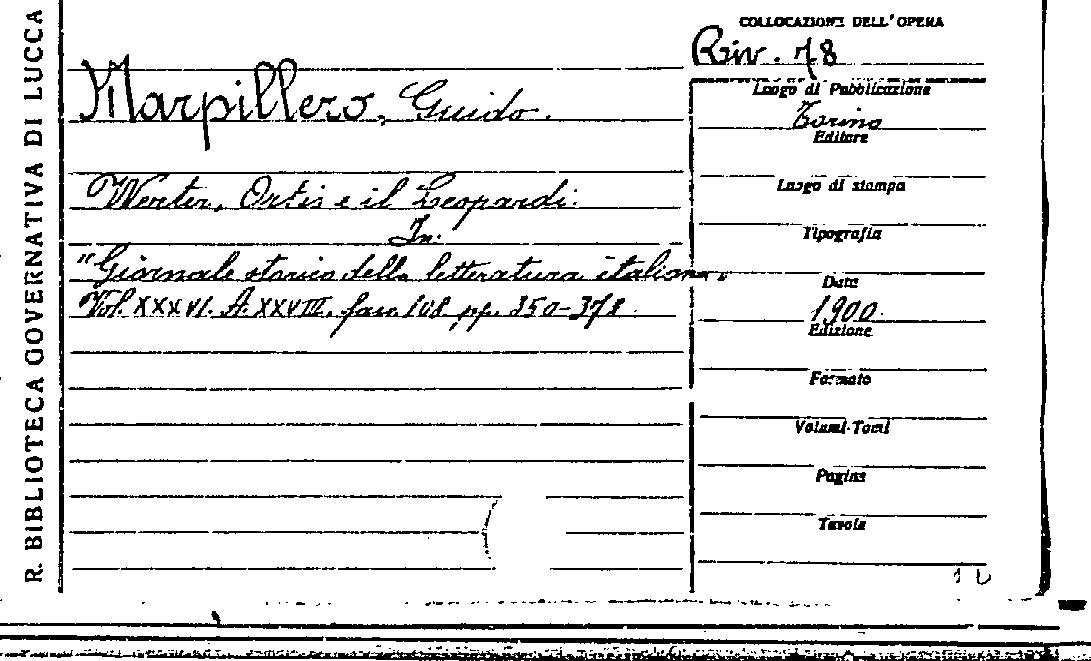 R. BIBLIOTECA GOVERNATIVA DI LUCCA
Marpillero, Guido.
Werter, Ortis e il Leopardi.
In:
"Giornale storico della letteratura italiana"
Vol. XXXVI. A. XXVIII. fasc. 108 pp. 350-378.
COLLOCAZIONE DELL'OPERA
Riv. 78
Luogo di Pubblicazione
Torino
Editore
Luogo di stampa
Tipografia
Data
1900
Edizione
Formato
Volumi-Tomi
Pagine
Tavole